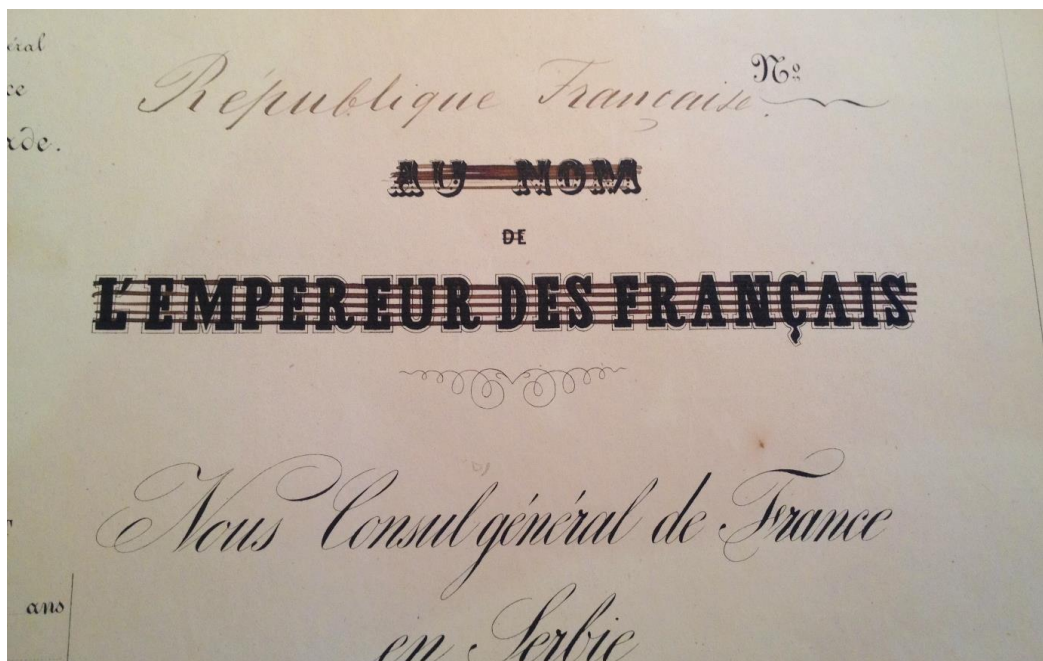 République Française.
Nº
AU NOM
DE
L'EMPEREUR DES FRANÇAIS
Nous Consul général de France
en Serbie
ans